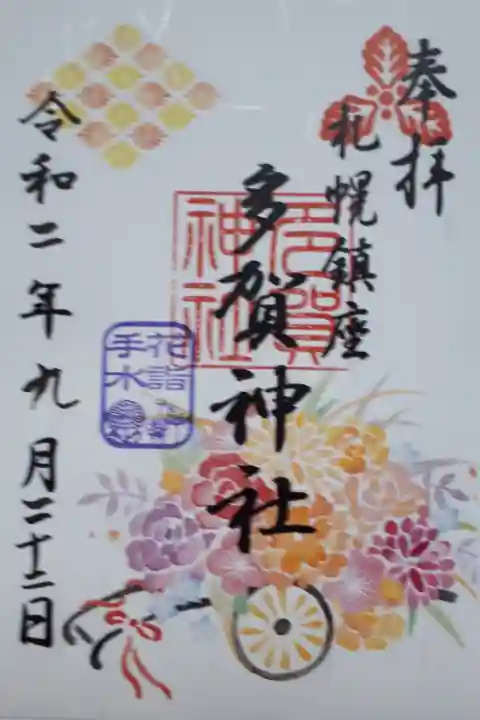 奉拝
札幌鎮座
多賀神社
多賀神社
花詣
手水
令和二年九月二十二日